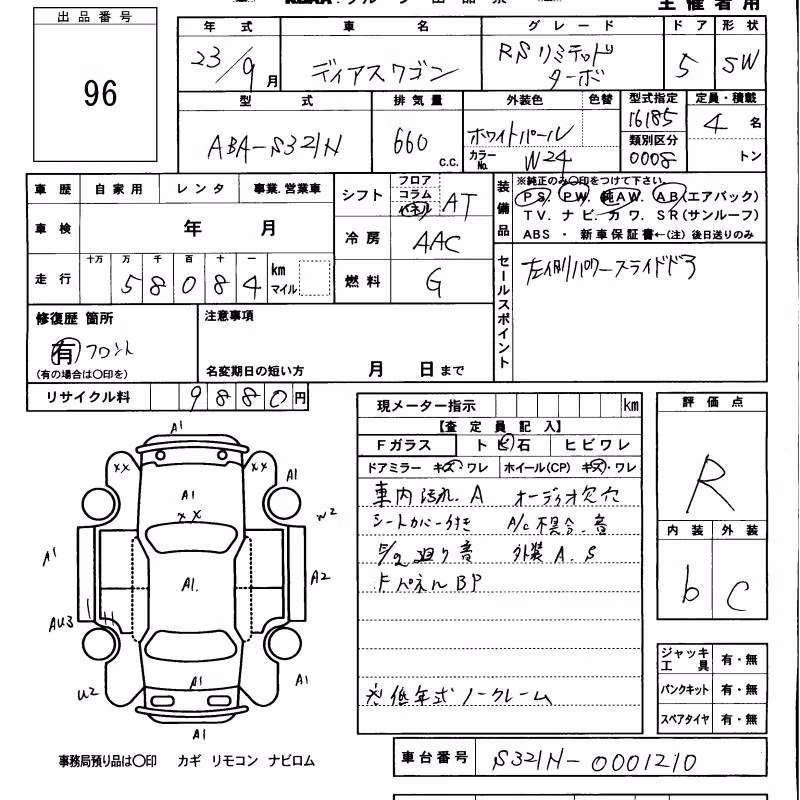 主催者用
出品番号
96
年式 車名 グレード ドア 形状
23/9月 ディアスワゴン RSリミテッド
ターボ 5 SW
型式 排気量 外装色 色替 型式指定 定員・積載
ABA-S321N 660 c.c. ホワイトパール 16185 4名
カラーNo. W24 類別区分 0008 トン
車歴 自家用 レンタ 事業.営業車 シフト フロア コラム パネル AT
車検 年 月 冷房 AAC
走行 十万 万 千 百 十 一 km マイル 燃料 G
5 8 0 8 4
装備品 ※純正のみ○印をつけて下さい。
PS. PW. 純AW. AB(エアバック)
TV. ナビ. カワ. SR(サンルーフ)
ABS ・ 新車保証書←(注)後日送りのみ
セールスポイント 左側パワースライドドア
修復歴 箇所 注意事項
有 フロント
(有の場合は○印を) 名変期日の短い方 月 日まで
リサイクル料 9880円
現メーター指示 km
【査定員記入】
Fガラス トビ石 ヒビワレ
ドアミラー キズ・ワレ ホイール(CP) キズ・ワレ
車内汚れ.A オーディオ欠穴
シートカバー付き A/C不具合.音
廻り音 外装A.S
FパネルBP
※低年式ノークレーム
評価点
R
内装 外装
b C
ジャッキ工具 有・無
パンクキット 有・無
スペアタイヤ 有・無
A1
XX XX
A1 A1
XX W2
A1 A1. A2
AU3
U2 A1 A1
A1
事務局預り品は○印 カギ リモコン ナビロム
車台番号 S321N-0001210